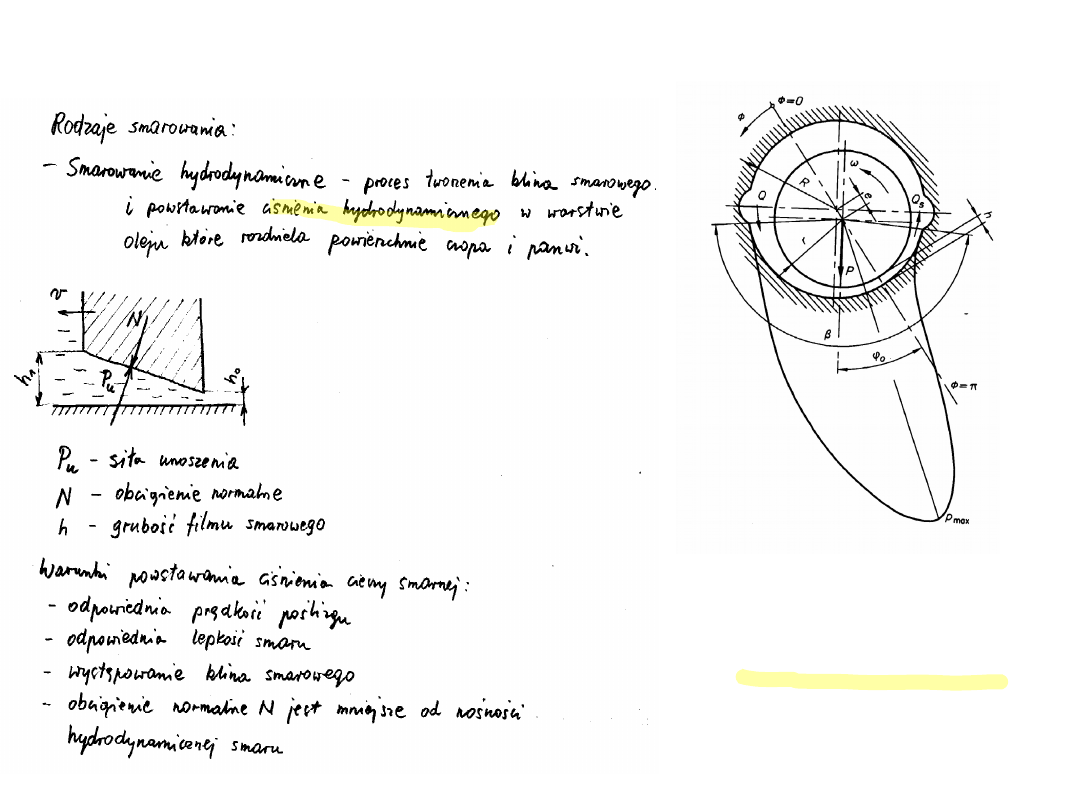 Rodzaje smarowania:
- Smarowanie hydrodynamiczne - proces tworzenia klina smarowego
i powstawanie ciśnienia hydrodynamicznego w warstwie
oleju które rozdziela powierzchnie czopa i panwi.
v
N
h₁
Pu
h₀
Pu - siła unoszenia
N - obciążenie normalne
h - grubość filmu smarowego
Warunki powstawania ciśnienia cieczy smarnej:
- odpowiednia prędkość poślizgu
- odpowiednia lepkość smaru
- występowanie klina smarowego
- obciążenie normalne N jest mniejsze od nośności
hydrodynamicznej smaru
Φ=0
Φ
ω
R
e
Q
Qs
h
r
P
β
φ₀
Φ=π
Pmax